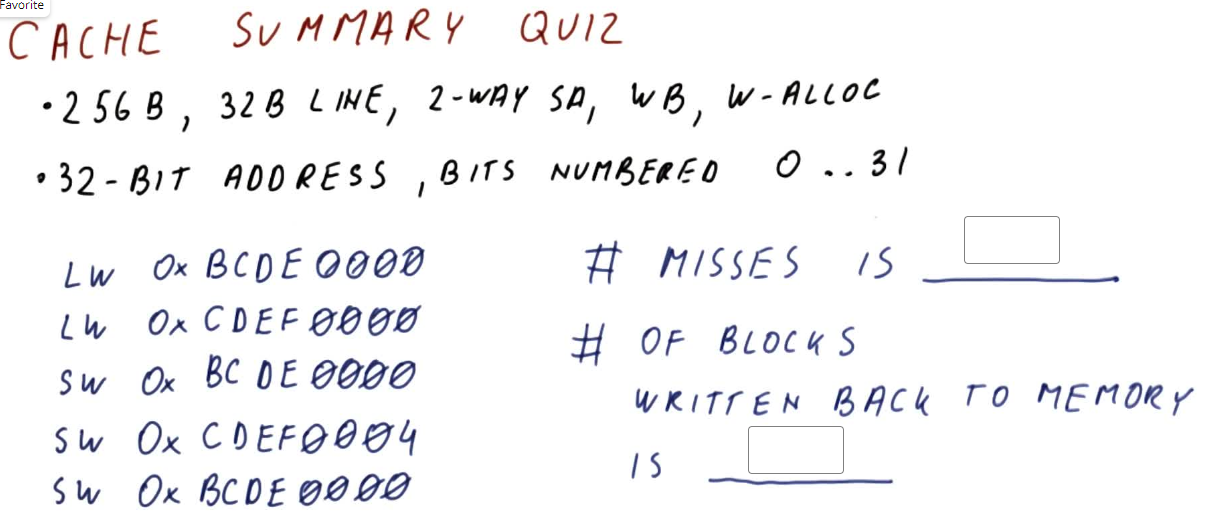 Favorite
CACHE SUMMARY QUIZ
• 256 B, 32B LINE, 2-WAY SA, WB, W-ALLOC
• 32-BIT ADDRESS, BITS NUMBERED 0..31
LW 0x BCDE0000
LW 0x CDEF0000
SW 0x BCDE0000
SW 0x CDEF0004
SW 0x BCDE0000
# MISSES IS
# OF BLOCKS
WRITTEN BACK TO MEMORY
IS